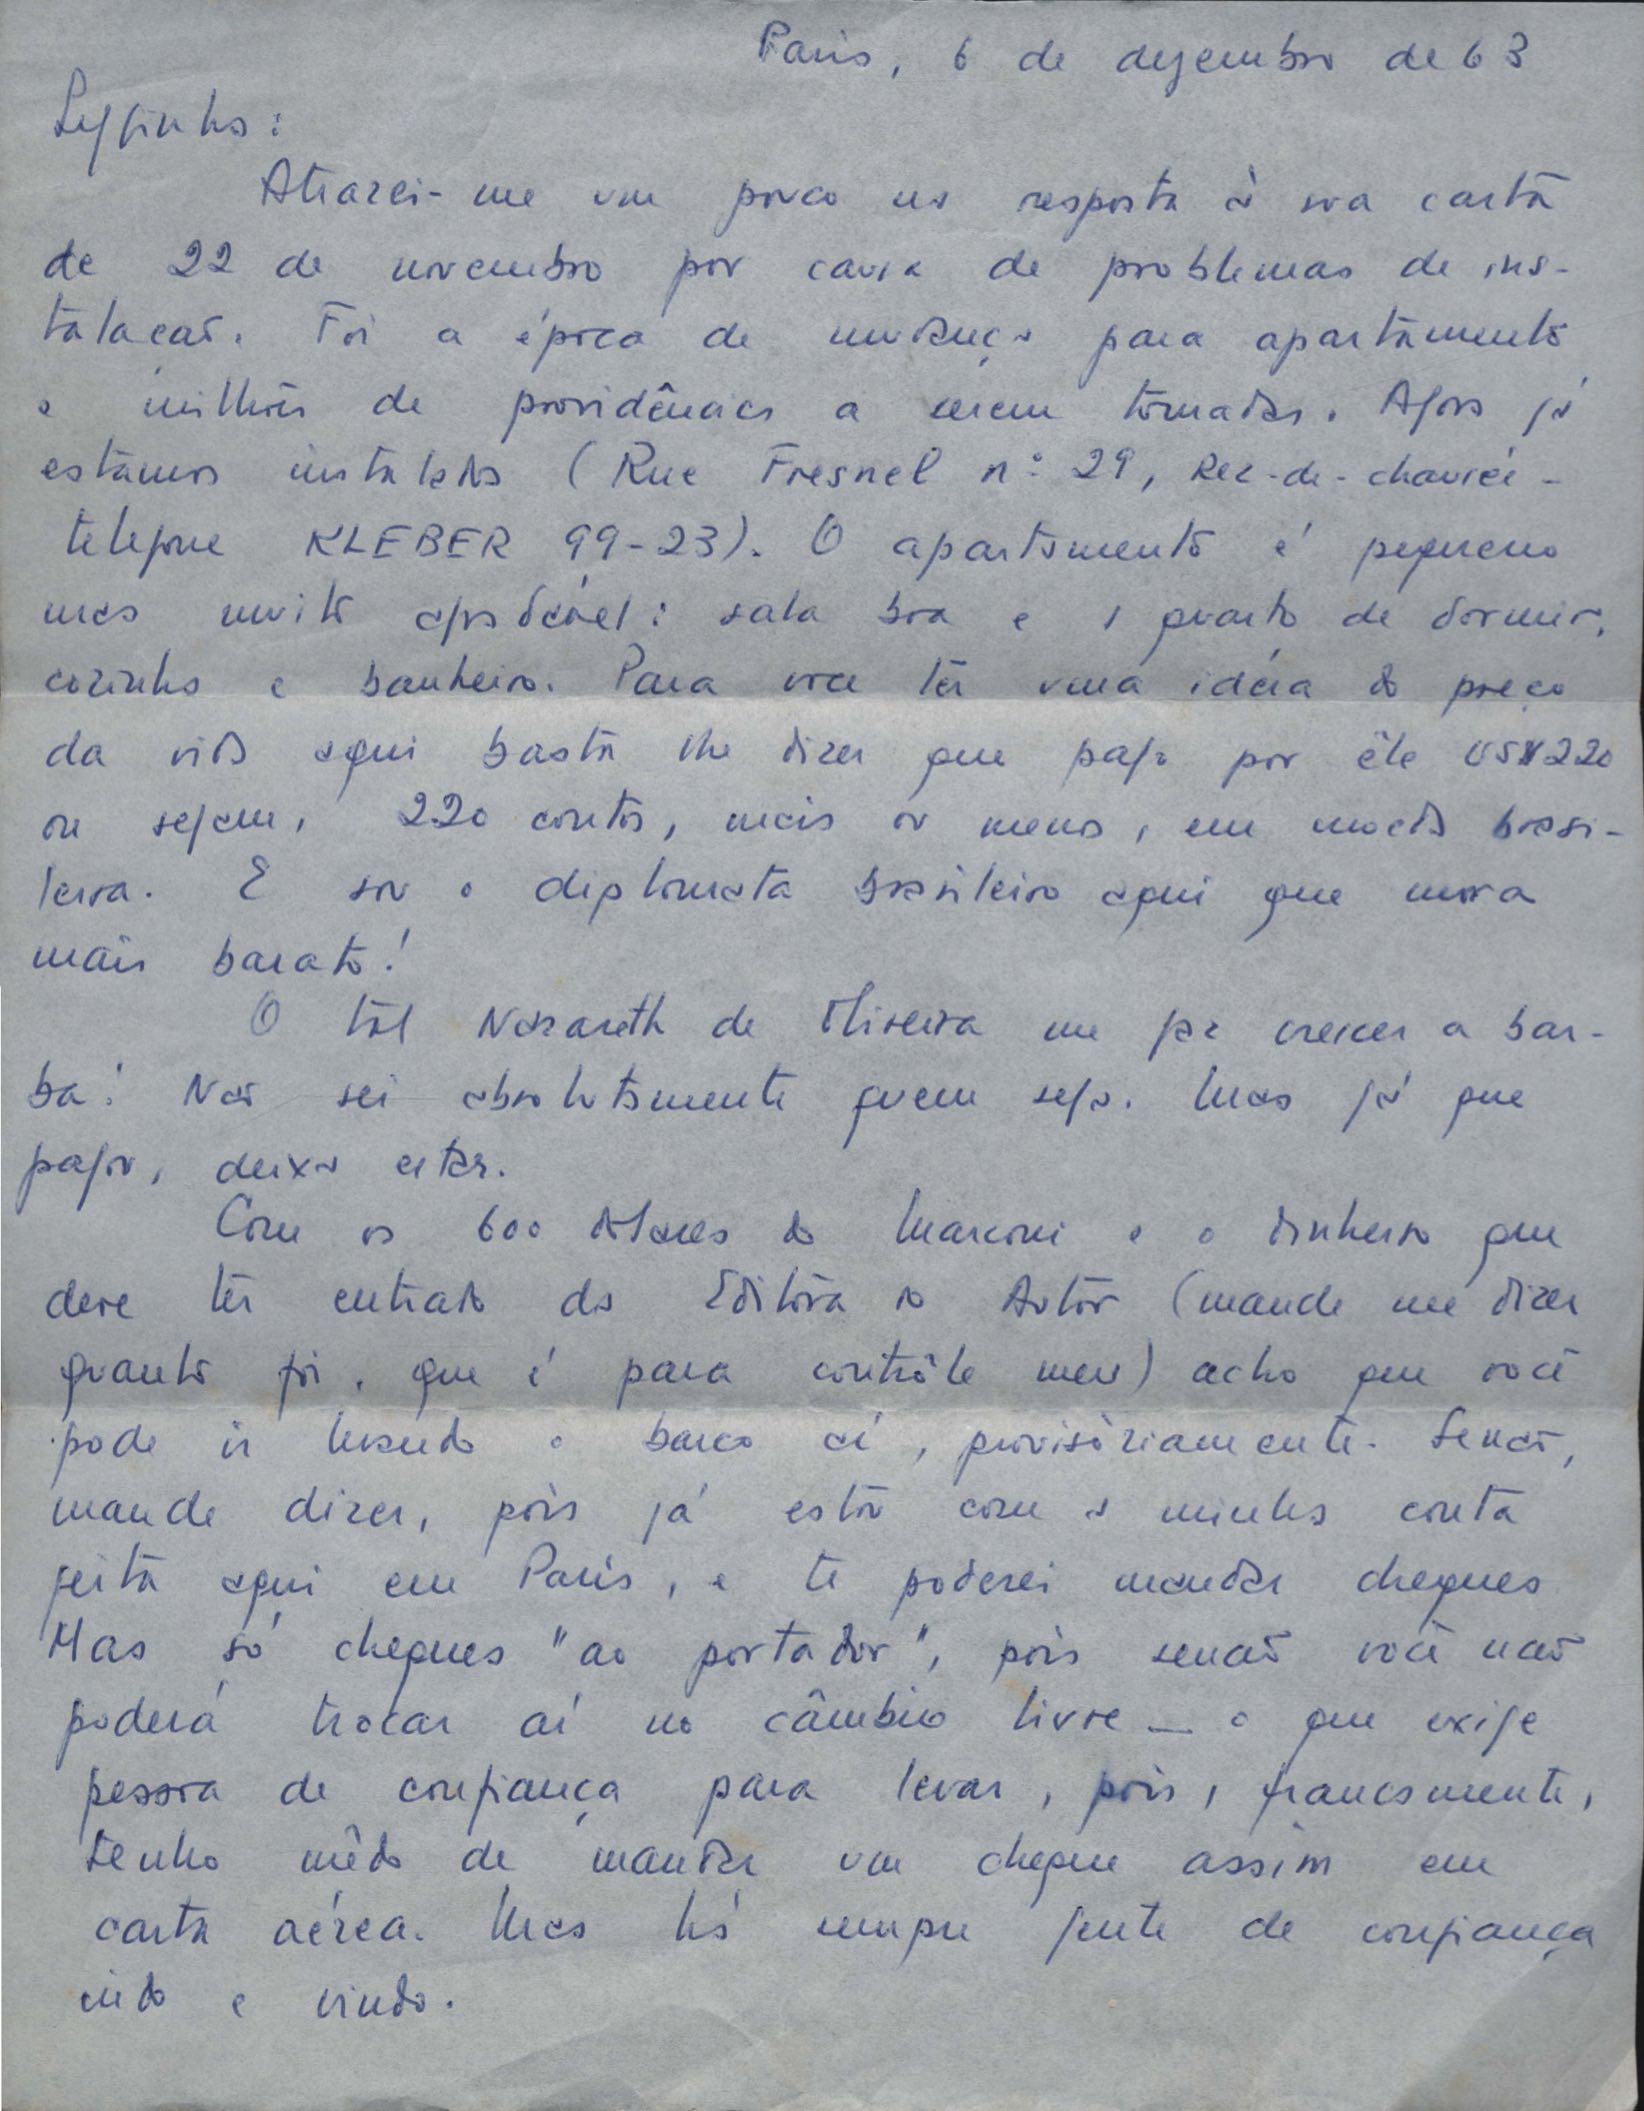 Paris, 6 de dezembro de 63
Leffinho:
Atrazei-me um pouco na resposta à sua carta
de 22 de novembro por causa de problemas de ins-
talação. Foi a época de mudança para apartamento
e milhões de providências a serem tomadas. Agora já
estamos instalados (Rue Fresnel nº 29, Rez-de-chaussée -
telefone KLEBER 99-23). O apartamento é pequeno
mas muito agradável: sala boa e 1 quarto de dormir,
cozinha e banheiro. Para você ter uma idéia do preço
da vida aqui basta lhe dizer que pago por êle US$220
ou sejam, 220 contos, mais ou menos, em moeda brasi-
leira. E sou o diplomata brasileiro aqui que mora
mais barato!
O tal Nazareth de Oliveira me faz crescer a bar-
ba! Não sei absolutamente quem seja. Mas já que
pagou, deixa estar.
Com os 600 dólares do Marconi e o dinheiro que
deve ter entrado da Editôra do Autor (mande me dizer
quanto foi, que é para contrôle meu) acho que você
pode ir levando o barco aí, provisòriamente. Senão,
mande dizer, pois já estou com a minha conta
feita aqui em Paris, e te poderei mandar cheques
Mas só cheques "ao portador", pois senão você não
poderá trocar aí no câmbio livre — o que exige
pessoa de confiança para levar, pois, francamente,
tenho mêdo de mandar um cheque assim em
carta aérea. Mas há sempre gente de confiança
indo e vindo.